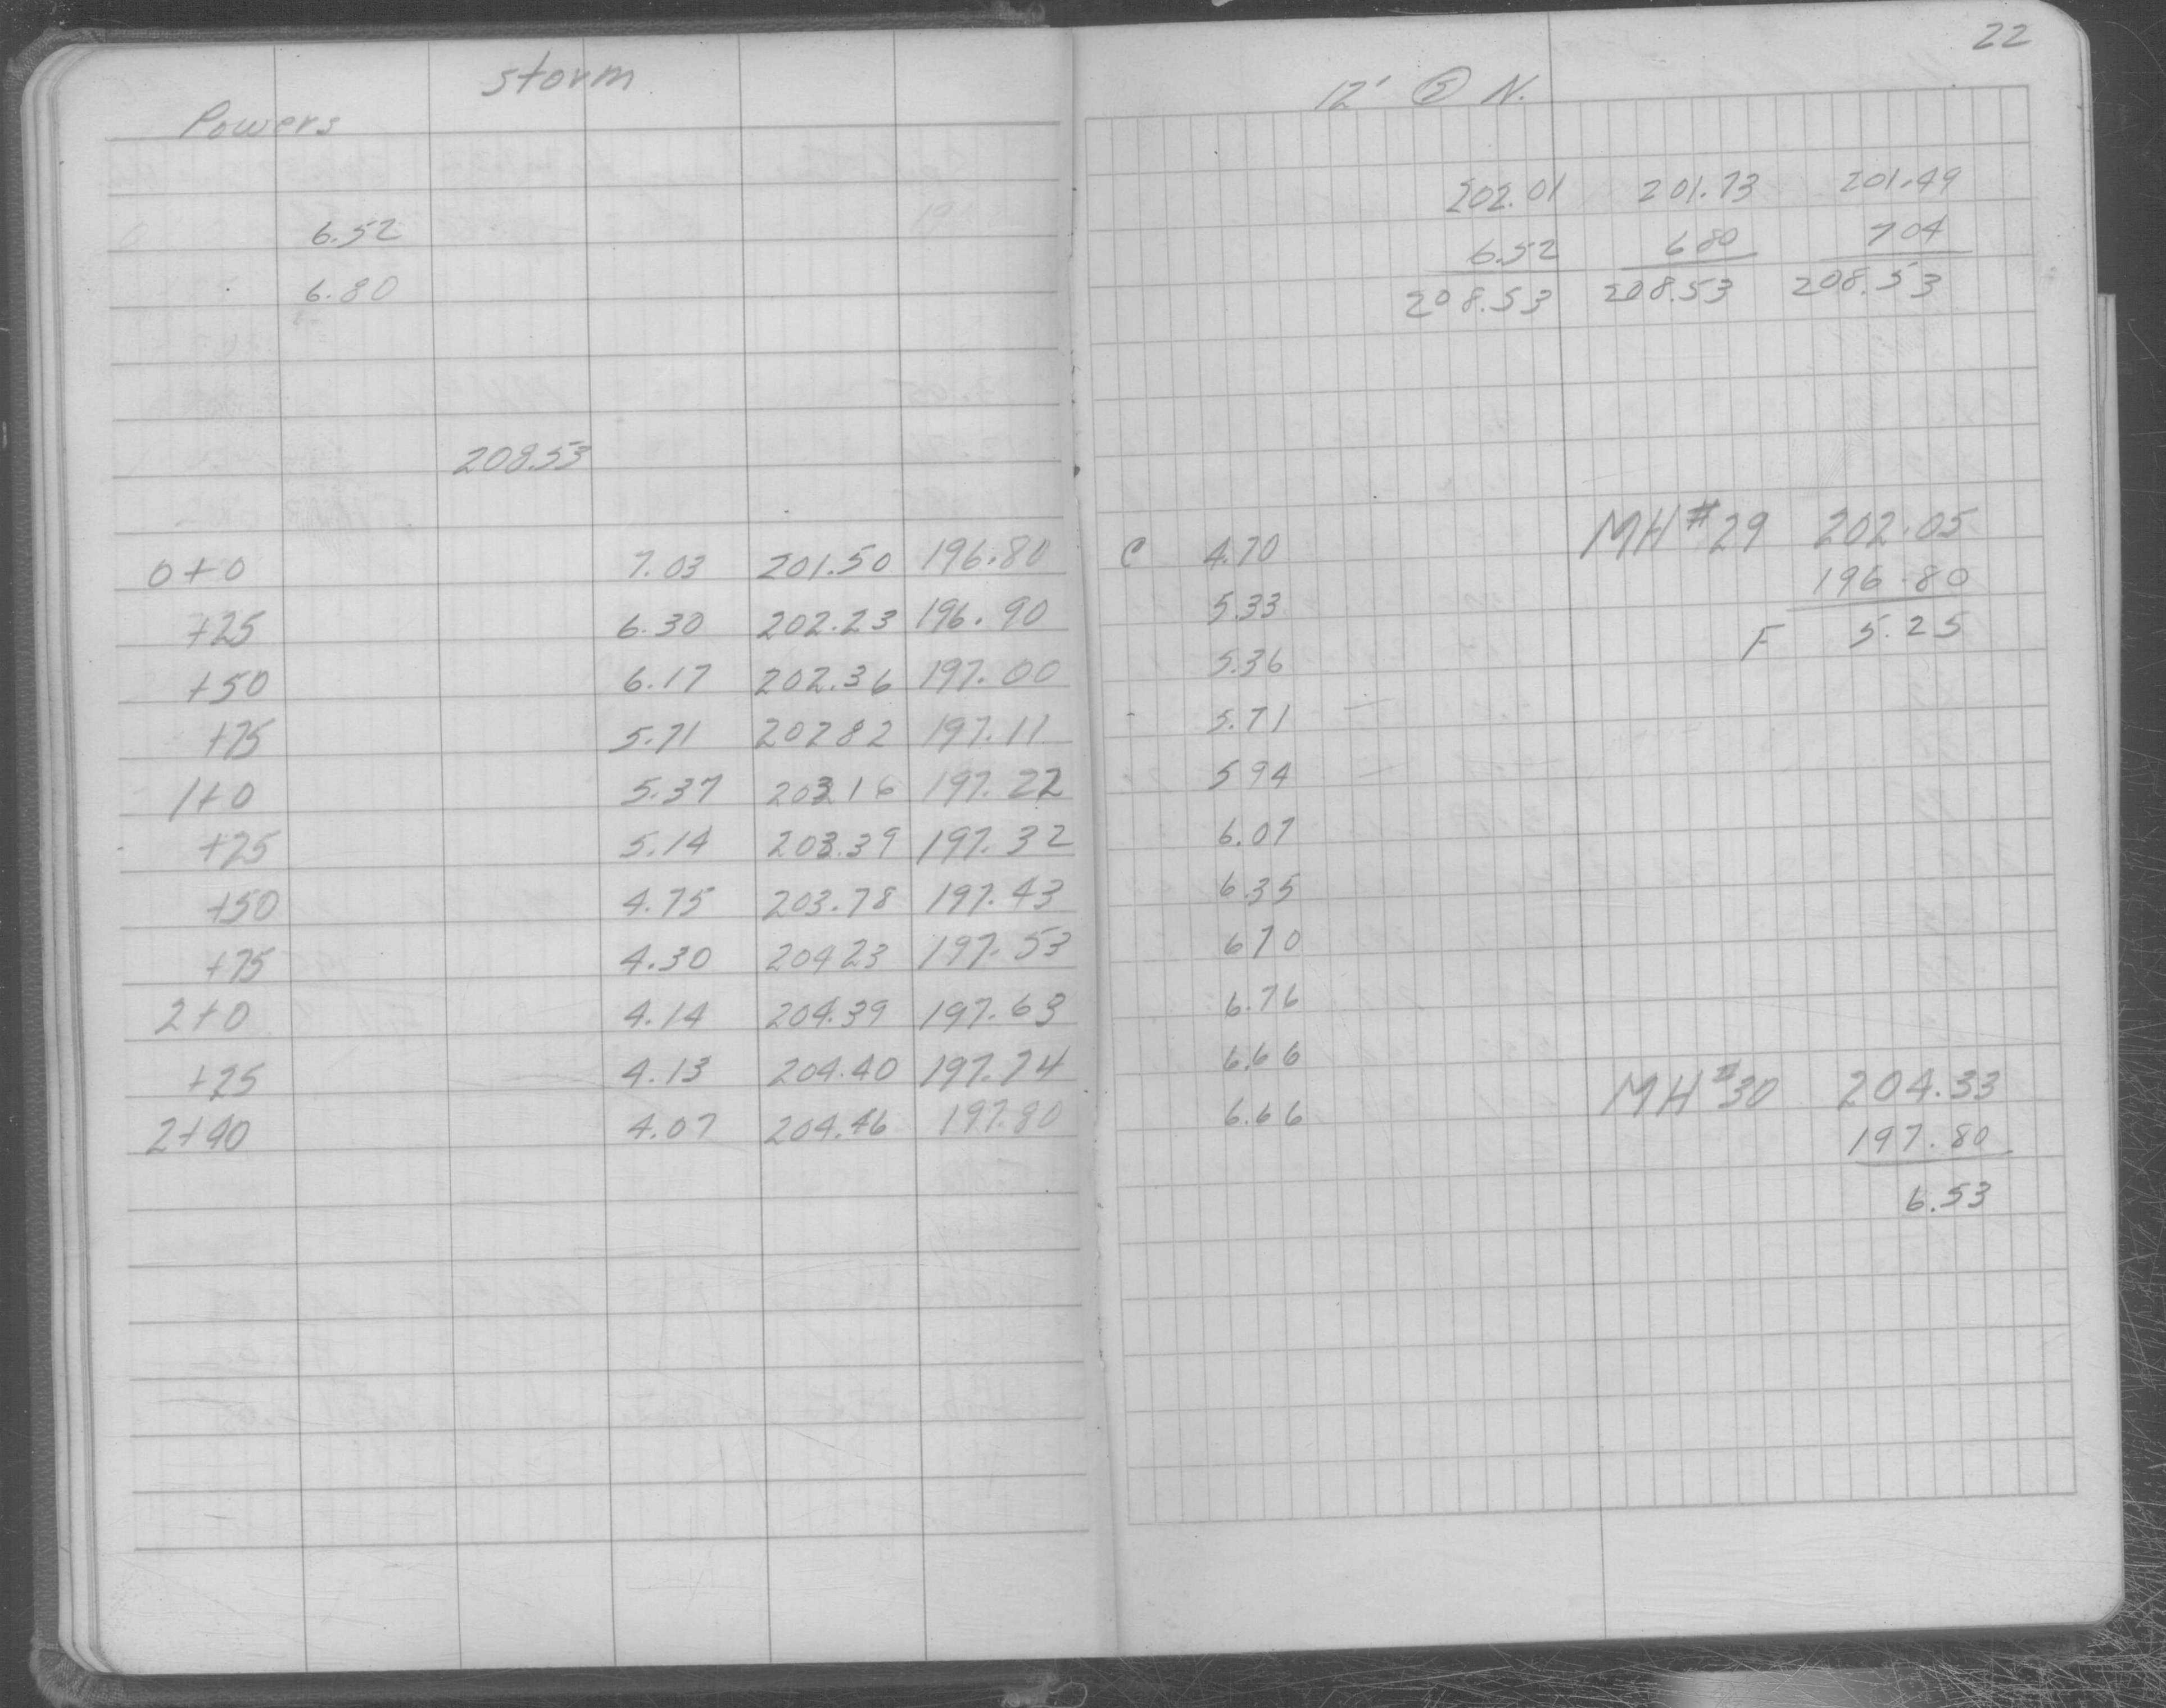 storm
Powers
6.52
6.80
208.53
0+0 7.03 201.50 196.80
+25 6.30 202.23 196.90
+50 6.17 202.36 197.00
+75 5.71 202 82 197.11
1+0 5.37 203 16 197.22
+25 5.14 203.39 197.32
+50 4.75 203.78 197.43
+75 4.30 204 23 197.53
2+0 4.14 204.39 197.63
+25 4.13 204.40 197.74
2+40 4.07 204.46 197.80
22
12' N.
202.01 201.73 201.49
6.52 6 80 7 04
208.53 208.53 208.53
C 4.70 MH #29 202.05
196.80
5.33
F 5.25
5.36
5.71
5 94
6.07
6.35
6 70
6.76
6.66
MH #30 204.33
6.66
197.80
6.53